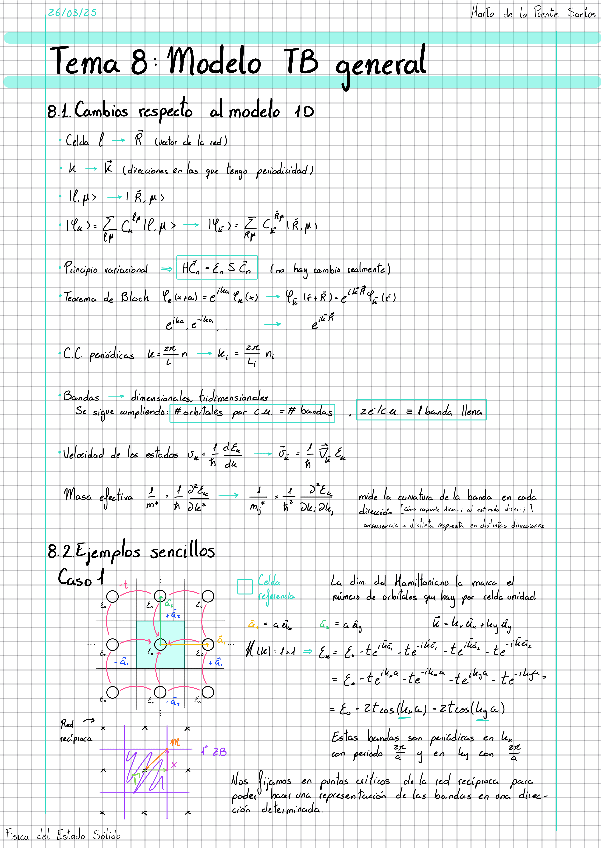 26/03/25
Marta de la Puente Santos
Tema 8: Modelo TB general
8.1. Cambios respecto al modelo 1D
· Celda l → R⃗ (vector de la red)
· k → k⃗ (direcciones en las que tengo periodicidad)
· |l, μ> → |R⃗, μ>
· |φₖ> = Σ_{lμ} Cₖ^{lμ} |l, μ> → |φ_k⃗> = Σ_{R⃗μ} C_k⃗^{R⃗μ} |R⃗, μ>
· Principio variacional → HC⃗ₙ = εₙ S C⃗ₙ (no hay cambio realmente)
· Teorema de Bloch φₖ(x+a) = e^{ika} φₖ(x) → φ_k⃗(r⃗+R⃗) = e^{ik⃗R⃗} φ_k⃗(r⃗)
e^{ika}, e^{-ika} → e^{ik⃗R⃗}
· C.C. periódicas k = 2π/L n → kᵢ = 2π/Lᵢ nᵢ
· Bandas → dimensionales, bidimensionales
Se sigue cumpliendo: # orbitales por c.u. = # bandas , 2e⁻/c.u ≡ 1 banda llena
· Velocidad de los estados vₖ = 1/ħ dEₖ/dk → v⃗ₖ = 1/ħ ∇⃗ₖ Eₖ
Masa efectiva 1/m* = 1/ħ ∂²Eₖ/∂k² → 1/mᵢⱼ* = 1/ħ² ∂²Eₖ/∂kᵢ∂kⱼ mide la curvatura de la banda en cada
dirección
8.2. Ejemplos sencillos
Caso 1
-t
E₀
a⃗₂
+a⃗₂
a⃗₁
-a⃗₁
+a⃗₁
-a⃗₂
Celda
referencia
a⃗₁ = a u⃗ₓ a⃗₂ = a u⃗ᵧ k⃗ = kₓ u⃗ₓ + kᵧ u⃗ᵧ
La dim del Hamiltoniano la marca el
número de orbitales que hay por celda unidad.
H(k): 1×1 ⇒ Eₖ = E₀ - te^{ik⃗a⃗₁} - te^{-ik⃗a⃗₁} - te^{ik⃗a⃗₂} - te^{-ik⃗a⃗₂}
= E₀ - te^{ikₓa} - te^{-ikₓa} - te^{ikᵧa} - te^{-ikᵧa} =
= E₀ - 2t cos(kₓa) - 2t cos(kᵧa)
Estas bandas son periódicas en kₓ
con periodo 2π/a y en kᵧ con 2π/a
Red
recíproca
M
Γ
X
1ª ZB
Nos fijamos en puntos críticos de la red recíproca para
poder hacer una representación de las bandas en una direc-
ción determinada.
Física del Estado Sólido